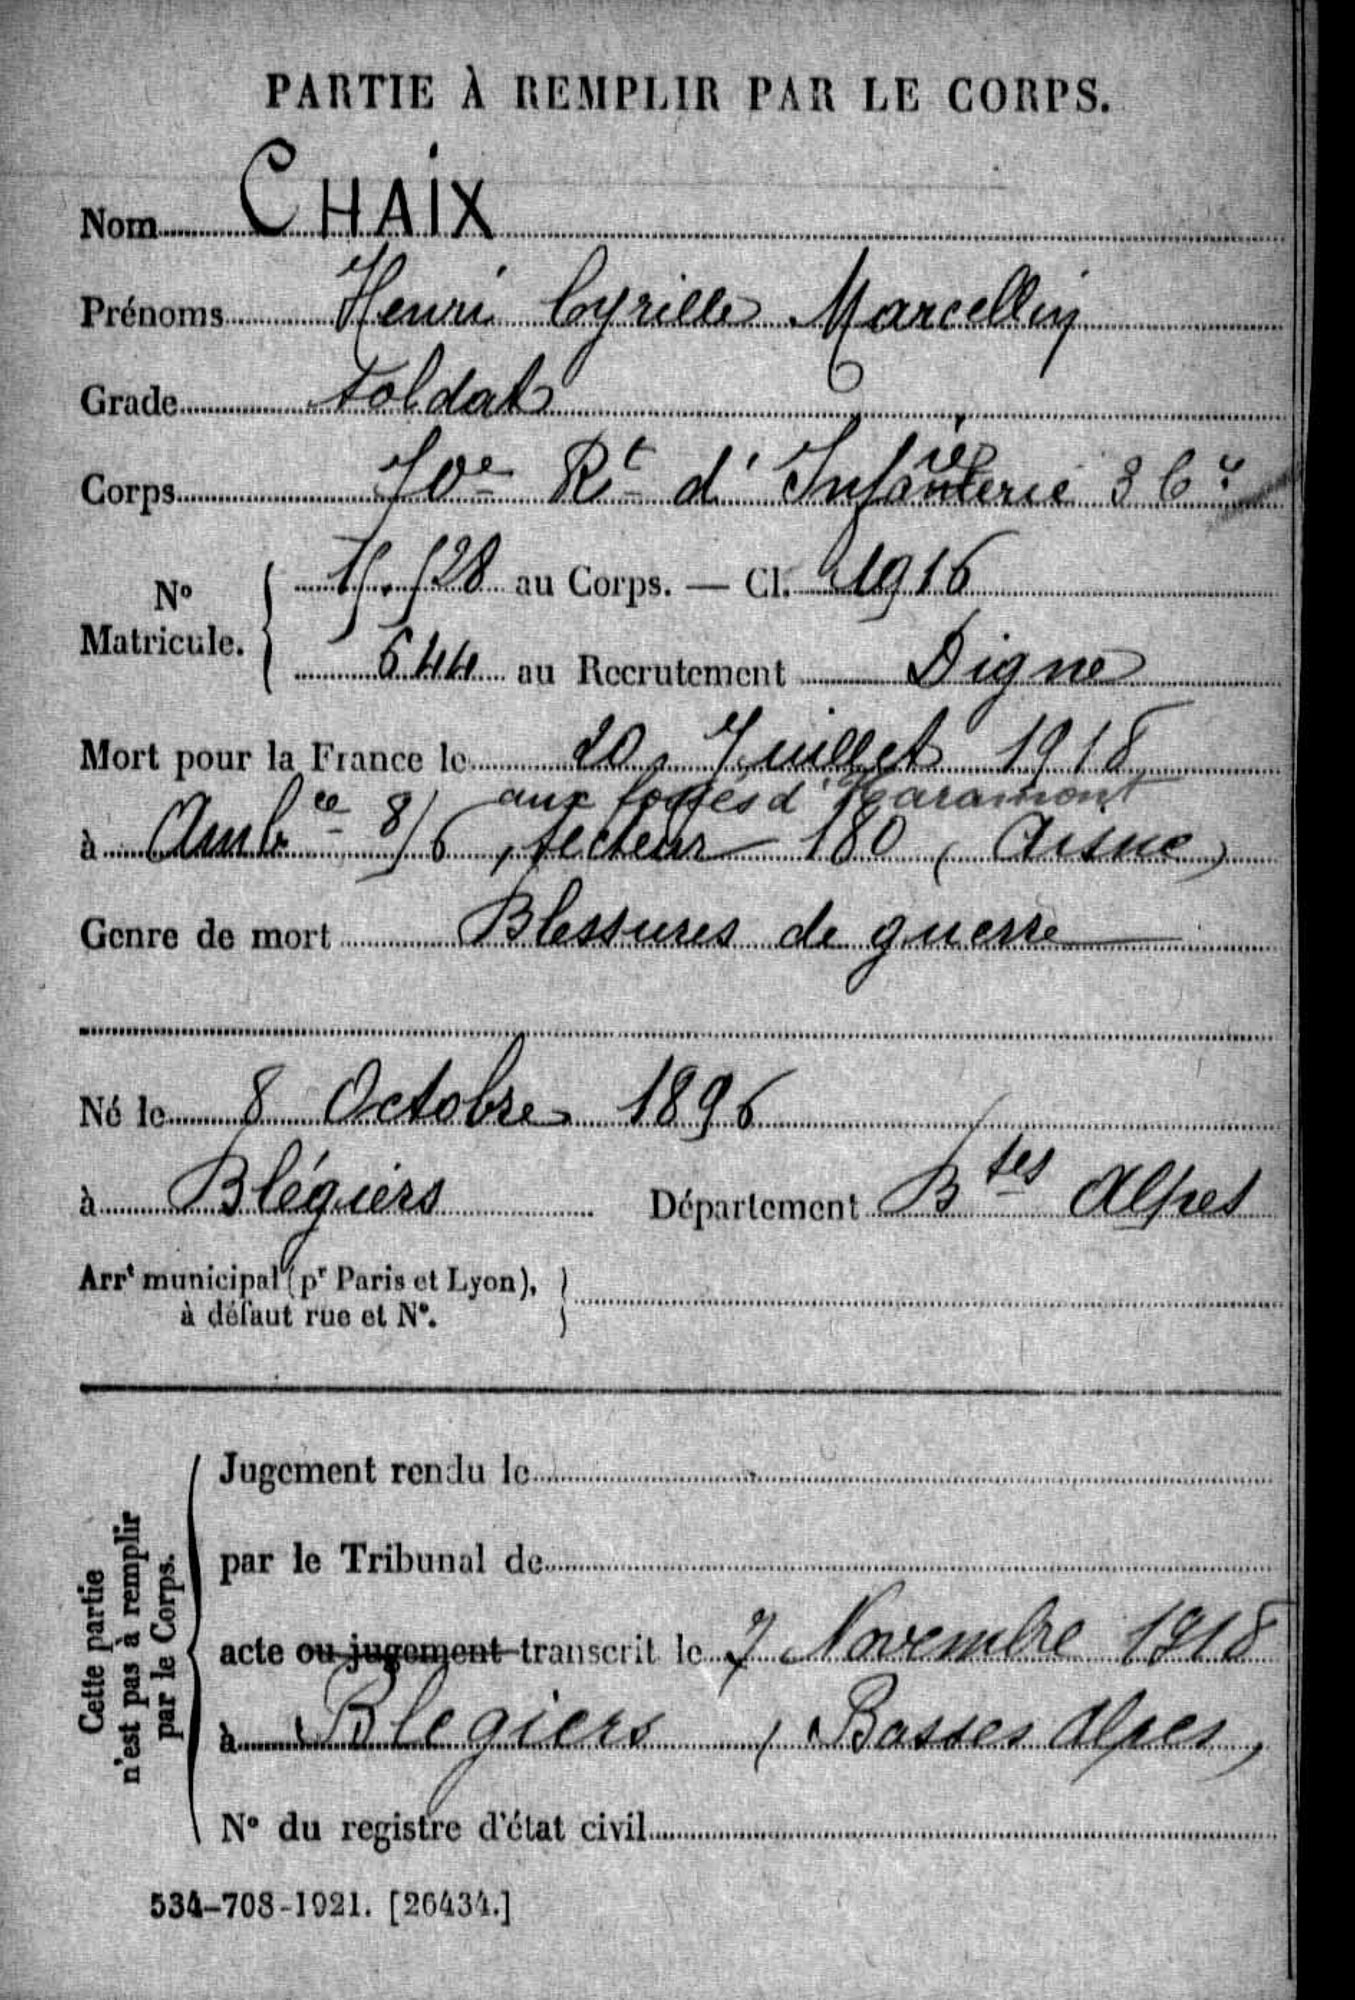 PARTIE À REMPLIR PAR LE CORPS.
Nom CHAIX
Prénoms Henri Cyrille Marcellin
Grade Soldat
Corps 70e Rt d'Infanterie
N° Matricule. 15.528 au Corps. — Cl. 1916
644 au Recrutement Digne
Mort pour la France le 20 Juillet 1918
aux fossés d'Haramont
à Ambce 8/6, secteur 180 (Aisne)
Genre de mort Blessures de guerre
Né le 8 Octobre 1896
à Blégiers Département Btes Alpes
Arrt municipal (pr Paris et Lyon),
à défaut rue et N°.
Cette partie
n'est pas à remplir
par le Corps.
Jugement rendu le
par le Tribunal de
acte ou jugement transcrit le 7 Novembre 1918
à Blegiers (Basses Alpes)
N° du registre d'état civil
534-708-1921. [26434.]